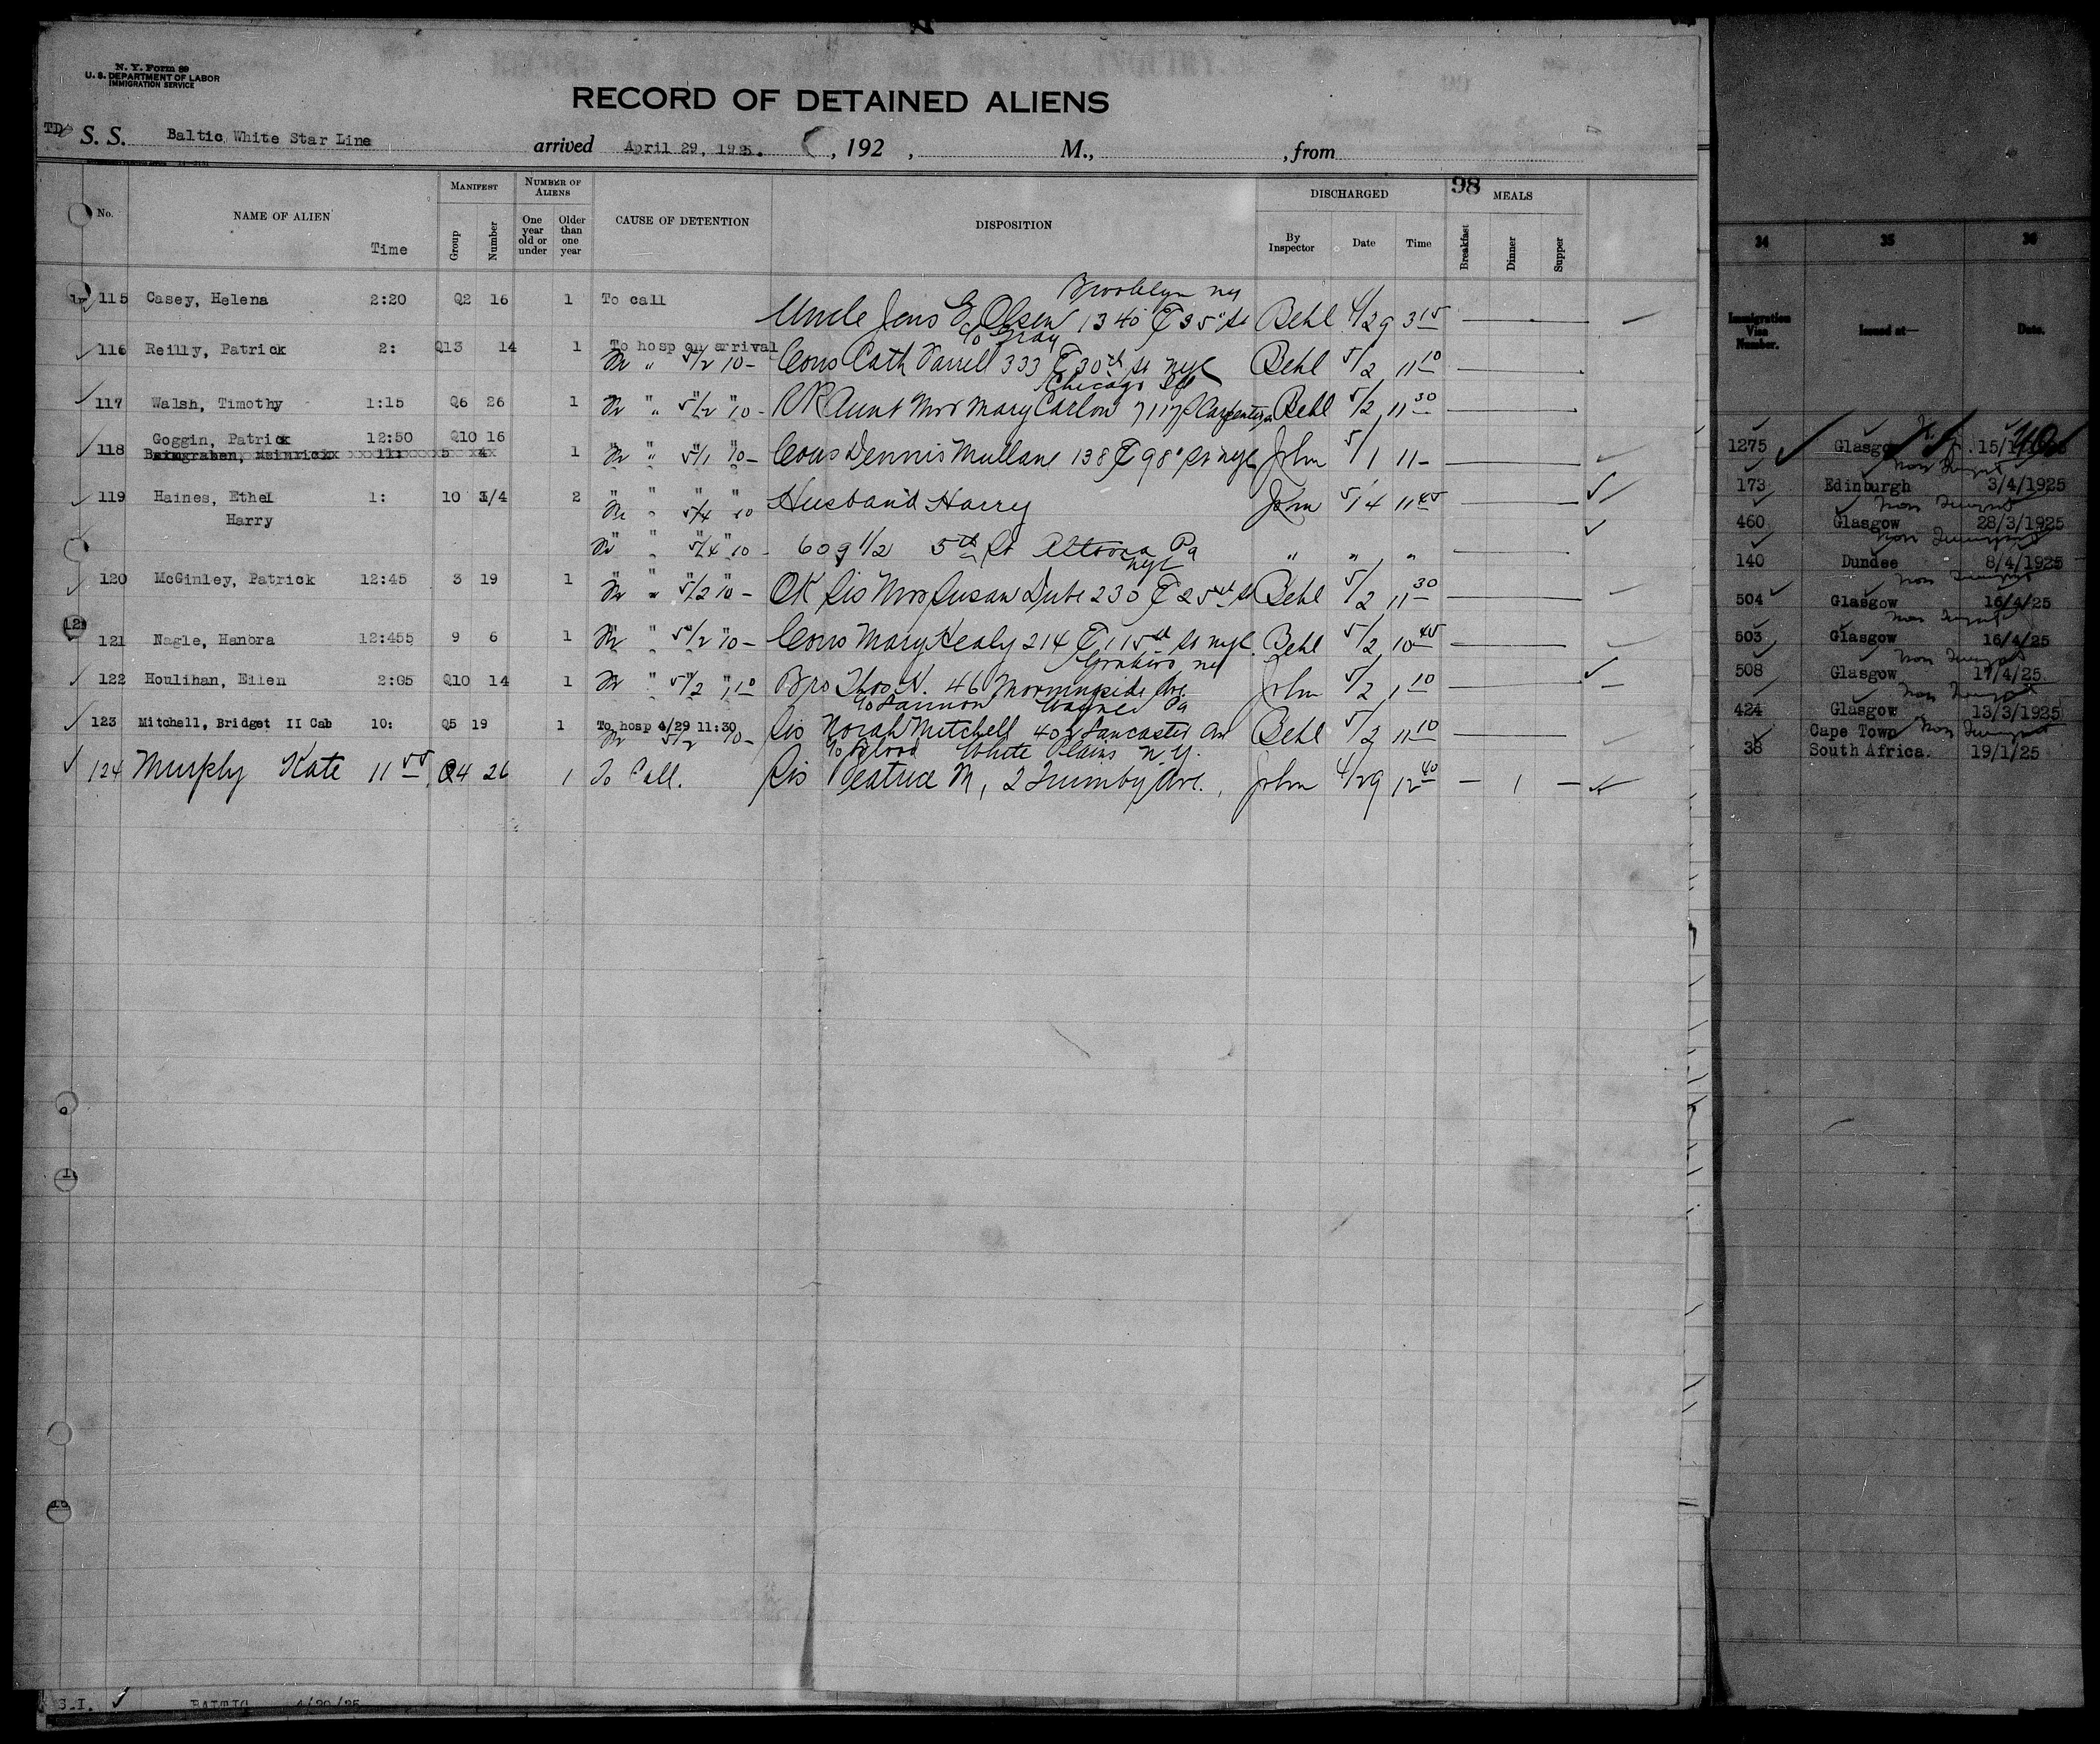 N. Y. Form 89
U. S. DEPARTMENT OF LABOR
IMMIGRATION SERVICE
RECORD OF DETAINED ALIENS
TD S. S. Baltic White Star Line arrived April 29, 1925. , 192 , M., , from
98
No. NAME OF ALIEN Time MANIFEST Group Number NUMBER OF ALIENS One year old or under Older than one year CAUSE OF DETENTION DISPOSITION DISCHARGED By Inspector Date Time MEALS Breakfast Dinner Supper
Brooklyn ny
115 Casey, Helena 2:20 Q2 16 1 To call Uncle Jens E Olsen 1340 E 35" St Behl 4/29 3 15
c/o Gray
116 Reilly, Patrick 2: Q13 14 1 To hosp on arrival
" 5/2 10- Cous Cath Farrell 333 E 30th St nyc Behl 5/2 11 10
Chicago Ill
117 Walsh, Timothy 1:15 Q6 26 1 " " 5/2 " 10- OK Aunt Mrs Mary Carlon 7117 S Carpenter Behl 5/2 11 30
Goggin, Patrick 12:50 Q10 16
118 1 " " 5/1 " 10- Cous Dennis Mullane 138 E 98" St nyc John 5/1 11-
119 Haines, Ethel 1: 10 3/4 2 " " " "
" 5/4 10 Husband Harry John 5/4 11 45
Harry
" " 5/4 " 10 - 609 1/2 5th St Altoona Pa " " "
nyc
120 McGinley, Patrick 12:45 3 19 1 " " 5/2 " 10- OK Sis Mrs Susan Dube 230 E 25th St Behl 5/2 11 30
121 Nagle, Hanora 12:455 9 6 1 " " 5/2 " 10- Cous Mary Healy 214 E 115th St nyc. Behl 5/2 10 45
Yonkers, ny
122 Houlihan, Eilen 2:05 Q10 14 1 " " 5/2 " 1 10 Bro Thos H. 46 Morningside Ave. John 5/2 1 10
c/o Lannon Wayne Pa
123 Mitchell, Bridget II Cab 10: Q5 19 1 To hosp 4/29 11:30
5/2 10- Sis Norah Mitchell 402 Lancaster Av Behl 5/2 11 10
c/o Blood White Plains N.Y.
124 Murphy Kate 11 55 Q4 26 1 To Call. Sis Beatrice M, 2 Trumby Ave., John 4/29 12 40 - 1 -
S.I. BALTIC 4/29/25
34 35 36
Immigration Visa Number. Issued at— Date.
1275 Glasgow
173 Edinburgh 3/4/1925
460 Glasgow 28/3/1925
140 Dundee 8/4/1925
504 Glasgow 16/4/25
503 Glasgow 16/4/25
508 Glasgow 17/4/25
424 Glasgow 13/3/1925
Cape Town
38 South Africa. 19/1/25